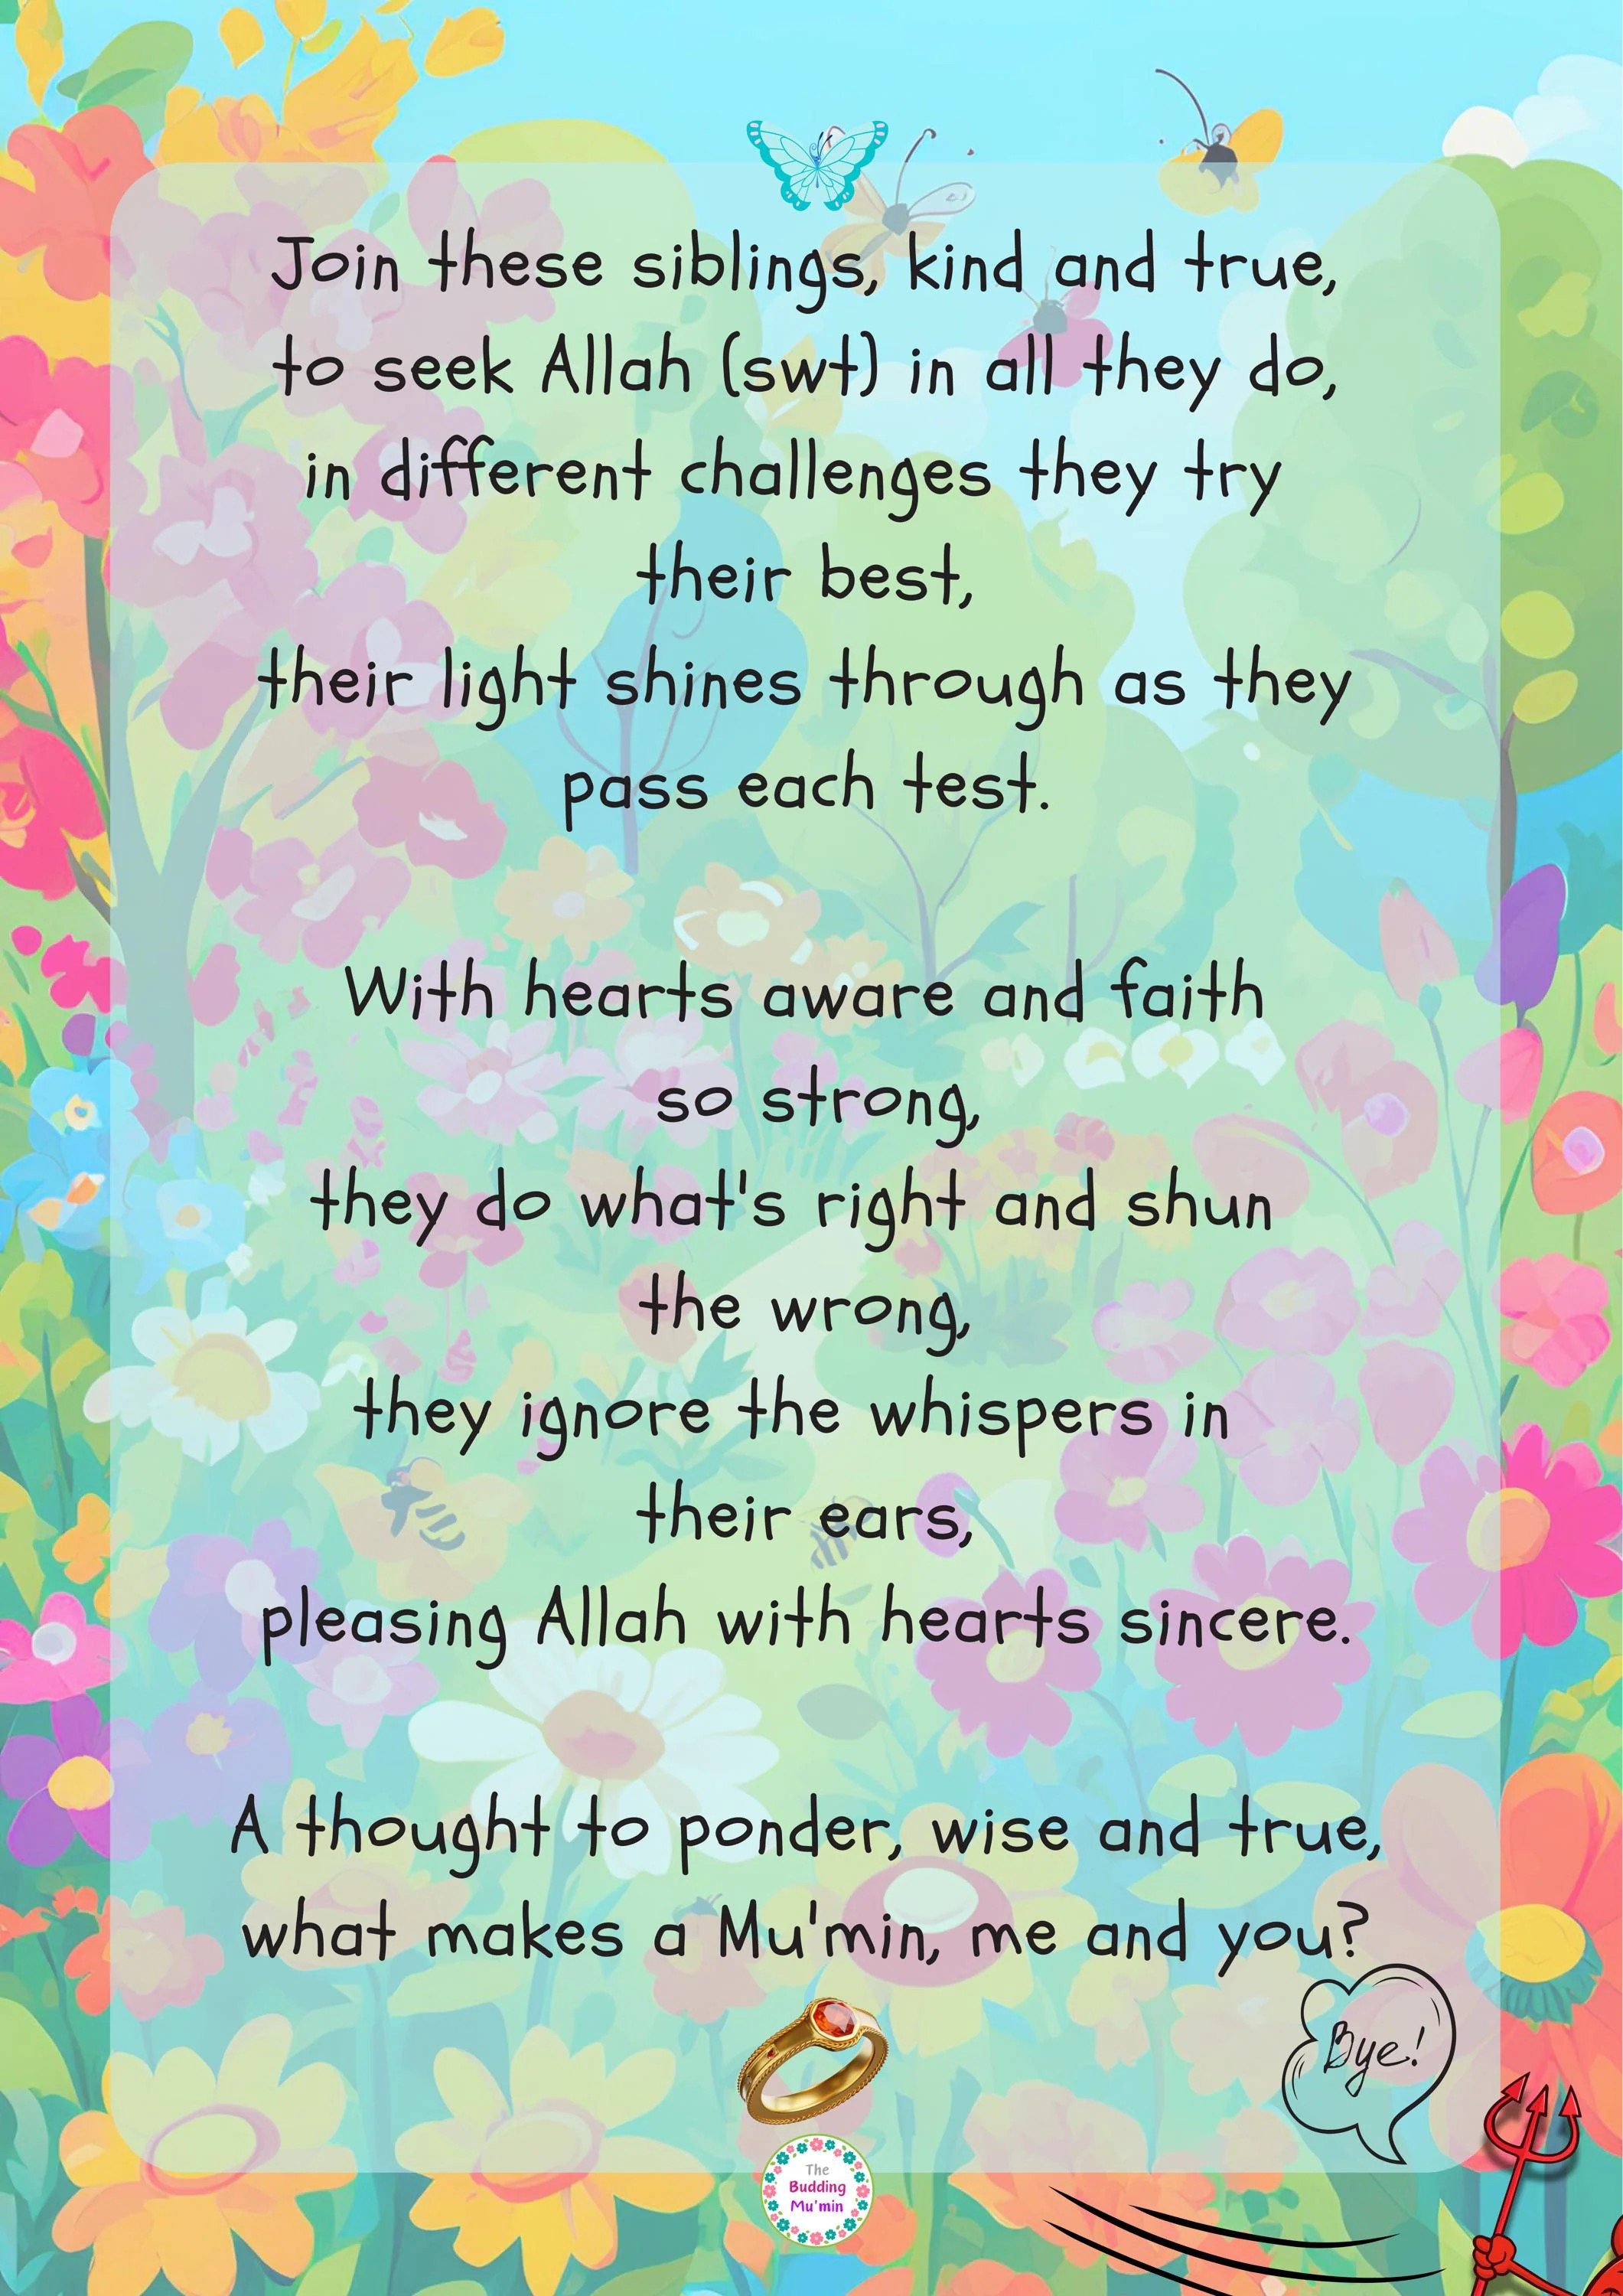 Join these siblings, kind and true,
to seek Allah (swt) in all they do,
in different challenges they try
their best,
their light shines through as they
pass each test.
With hearts aware and faith
so strong,
they do what's right and shun
the wrong,
they ignore the whispers in
their ears,
pleasing Allah with hearts sincere.
A thought to ponder, wise and true,
what makes a Mu'min, me and you?
Bye!
The
Budding
Mu'min